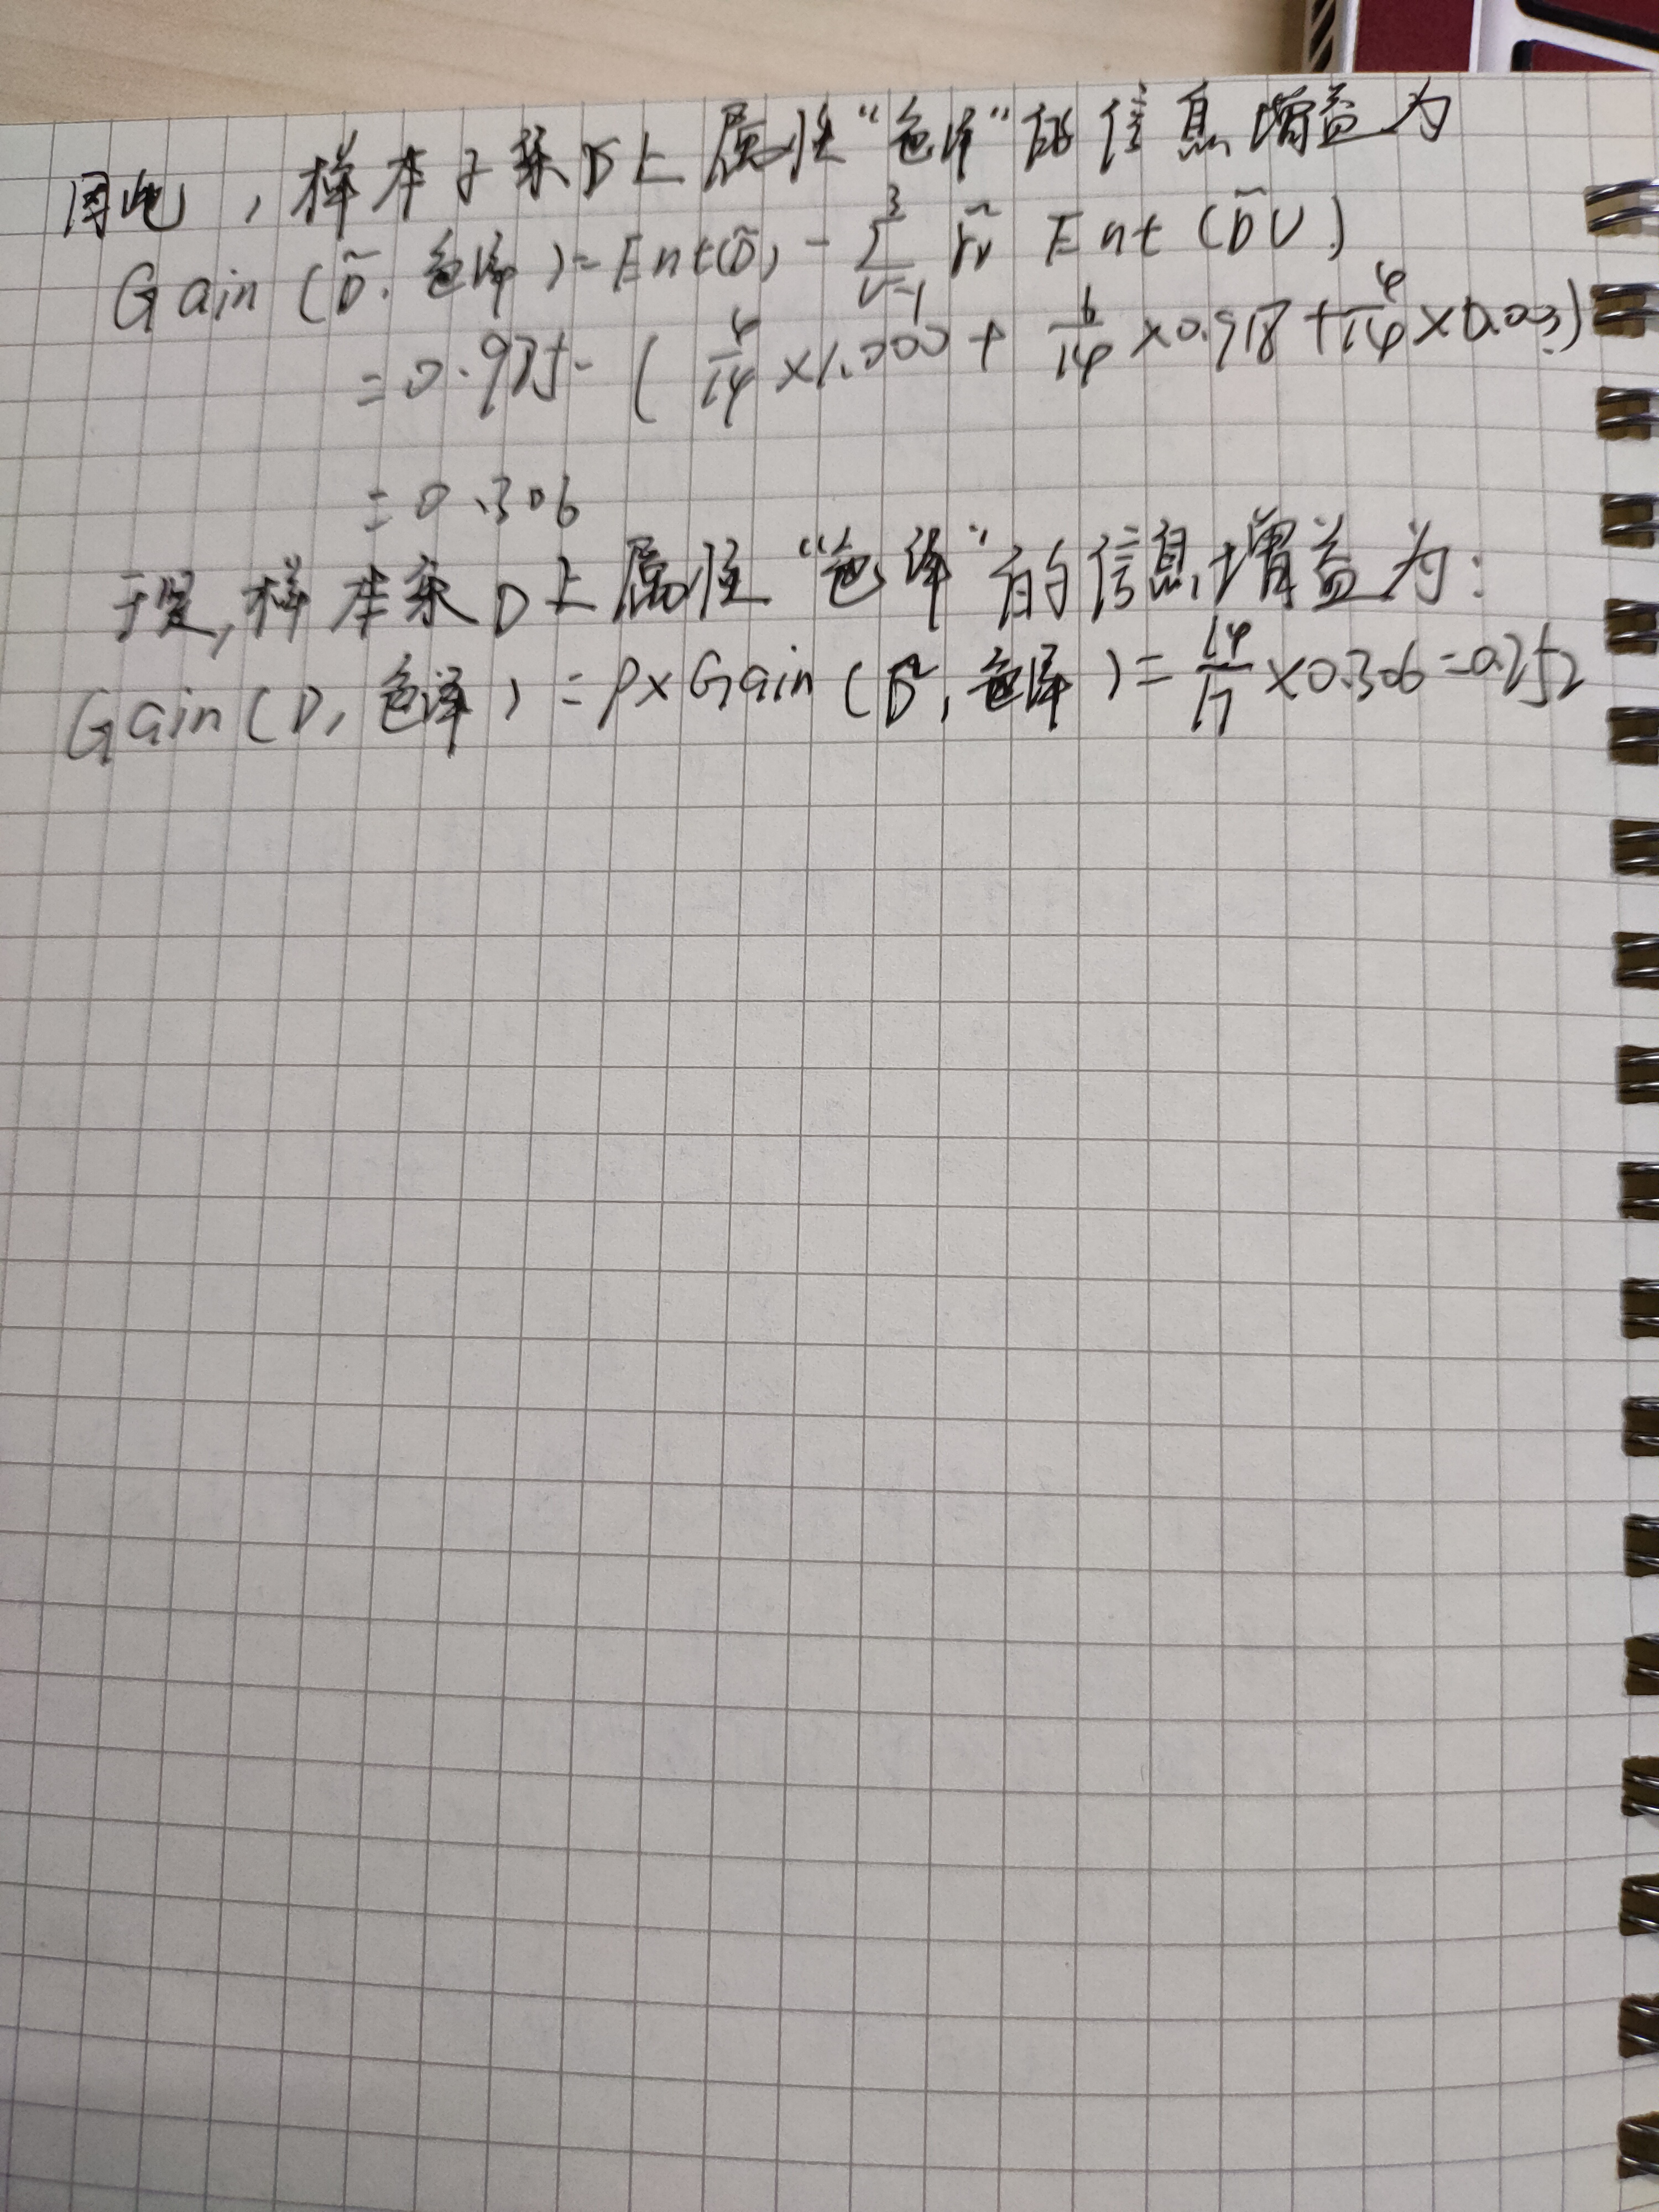 因此，样本子集D̃上属性“色泽”的信息增益为
Gain(D̃, 色泽)=Ent(D̃)-∑³ᵥ₌₁ r̃ᵥ Ent(D̃ᵛ)
=0.985-(4/14×1.000+6/14×0.918+4/14×0.000)
=0.306
于是,样本集D上属性“色泽”的信息增益为:
Gain(D, 色泽)=ρ×Gain(D̃, 色泽)=14/17×0.306=0.252